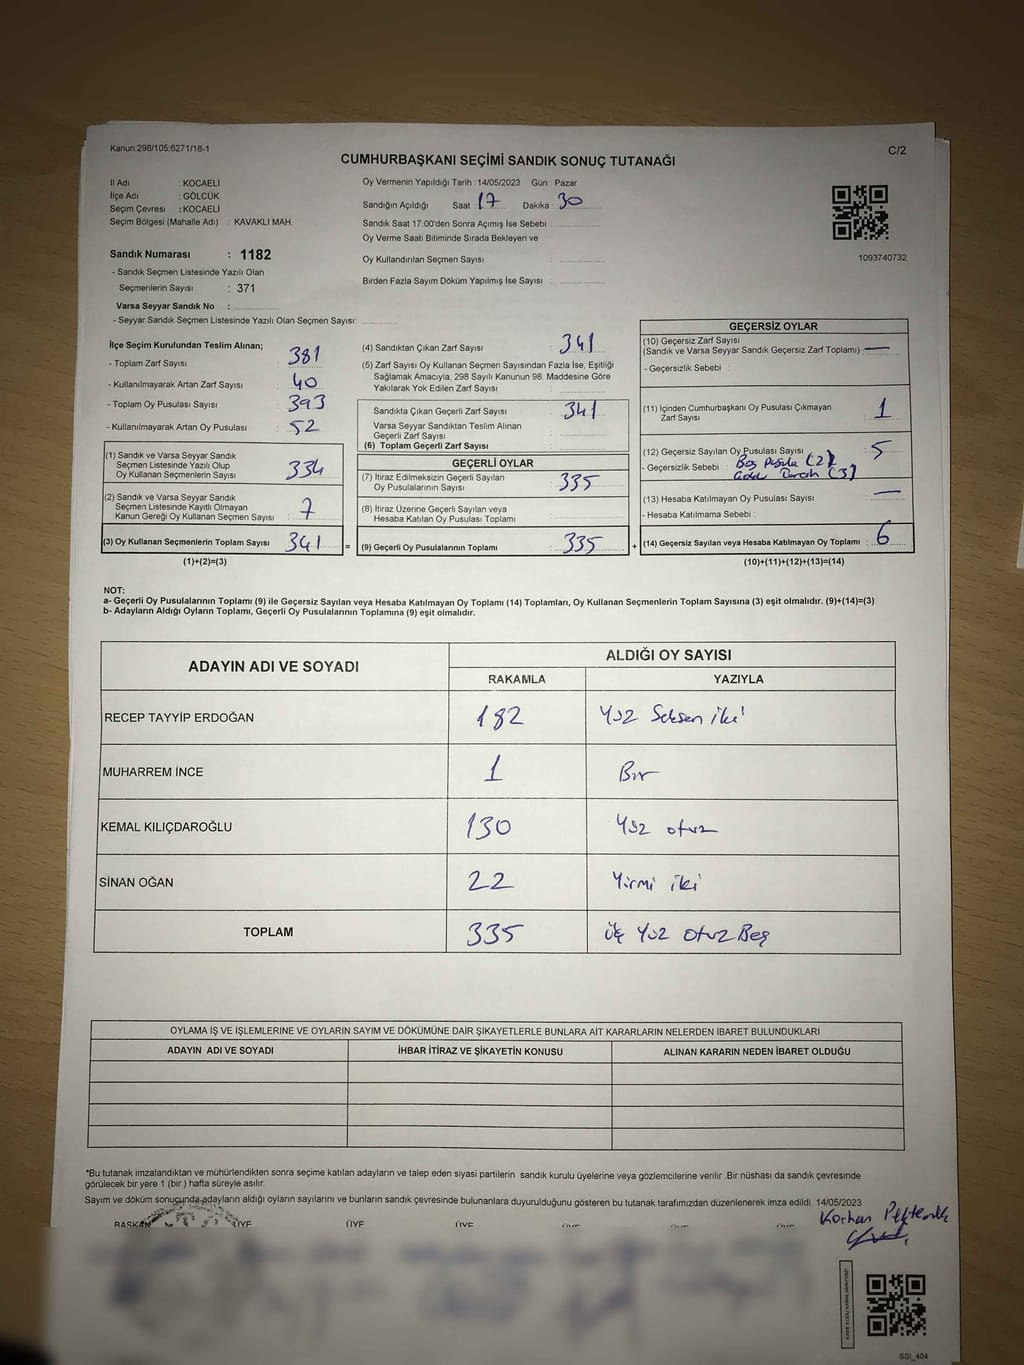 Kanun,298/105;6271/18-1
C/2
CUMHURBAŞKANI SEÇİMİ SANDIK SONUÇ TUTANAĞI
İl Adı : KOCAELİ
İlçe Adı : GÖLCÜK
Seçim Çevresi : KOCAELİ
Seçim Bölgesi (Mahalle Adı) : KAVAKLI MAH.
Sandık Numarası : 1182
- Sandık Seçmen Listesinde Yazılı Olan
Seçmenlerin Sayısı : 371
Varsa Seyyar Sandık No :
- Seyyar Sandık Seçmen Listesinde Yazılı Olan Seçmen Sayısı:
Oy Vermenin Yapıldığı Tarih : 14/05/2023 Gün : Pazar
Sandığın Açıldığı Saat : 17 Dakika : 30
Sandık Saat 17:00'den Sonra Açımış İse Sebebi :
Oy Verme Saati Bitiminde Sırada Bekleyen ve
Oy Kullandırılan Seçmen Sayısı :
Birden Fazla Sayım Döküm Yapılmış İse Sayısı :
1093740732
İlçe Seçim Kurulundan Teslim Alınan;
- Toplam Zarf Sayısı : 381
- Kullanılmayarak Artan Zarf Sayısı : 40
- Toplam Oy Pusulası Sayısı : 393
- Kullanılmayarak Artan Oy Pusulası : 52
(1) Sandık ve Varsa Seyyar Sandık
Seçmen Listesinde Yazılı Olup
Oy Kullanan Seçmenlerin Sayısı : 334
(2) Sandık ve Varsa Seyyar Sandık
Seçmen Listesinde Kayıtlı Olmayan
Kanun Gereği Oy Kullanan Seçmen Sayısı : 7
(3) Oy Kullanan Seçmenlerin Toplam Sayısı : 341 =
(1)+(2)=(3)
(4) Sandıktan Çıkan Zarf Sayısı : 341
(5) Zarf Sayısı Oy Kullanan Seçmen Sayısından Fazla İse, Eşitliği
Sağlamak Amacıyla; 298 Sayılı Kanunun 98. Maddesine Göre
Yakılarak Yok Edilen Zarf Sayısı :
Sandıkta Çıkan Geçerli Zarf Sayısı : 341
Varsa Seyyar Sandıktan Teslim Alınan
Geçerli Zarf Sayısı :
(6) Toplam Geçerli Zarf Sayısı :
GEÇERLİ OYLAR
(7) İtiraz Edilmeksizin Geçerli Sayılan
Oy Pusulalarının Sayısı : 335
(8) İtiraz Üzerine Geçerli Sayılan veya
Hesaba Katılan Oy Pusulası Toplamı :
(9) Geçerli Oy Pusulalarının Toplamı : 335 +
GEÇERSİZ OYLAR
(10) Geçersiz Zarf Sayısı
(Sandık ve Varsa Seyyar Sandık Geçersiz Zarf Toplamı) : —
- Geçersizlik Sebebi :
(11) İçinden Cumhurbaşkanı Oy Pusulası Çıkmayan
Zarf Sayısı : 1
(12) Geçersiz Sayılan Oy Pusulası Sayısı : 5
- Geçersizlik Sebebi : Boş Pusula (2)
(3)
(13) Hesaba Katılmayan Oy Pusulası Sayısı : —
- Hesaba Katılmama Sebebi :
(14) Geçersiz Sayılan veya Hesaba Katılmayan Oy Toplamı : 6
(10)+(11)+(12)+(13)=(14)
NOT:
a- Geçerli Oy Pusulalarının Toplamı (9) ile Geçersiz Sayılan veya Hesaba Katılmayan Oy Toplamı (14) Toplamları, Oy Kullanan Seçmenlerin Toplam Sayısına (3) eşit olmalıdır. (9)+(14)=(3)
b- Adayların Aldığı Oyların Toplamı, Geçerli Oy Pusulalarının Toplamına (9) eşit olmalıdır.
ADAYIN ADI VE SOYADI
ALDIĞI OY SAYISI
RAKAMLA YAZIYLA
RECEP TAYYİP ERDOĞAN 182 Yüz Seksen iki
MUHARREM İNCE 1 Bir
KEMAL KILIÇDAROĞLU 130 Yüz otuz
SİNAN OĞAN 22 Yirmi iki
TOPLAM 335 üç Yüz otuz Beş
OYLAMA İŞ VE İŞLEMLERİNE VE OYLARIN SAYIM VE DÖKÜMÜNE DAİR ŞİKAYETLERLE BUNLARA AİT KARARLARIN NELERDEN İBARET BULUNDUKLARI
ADAYIN ADI VE SOYADI İHBAR İTİRAZ VE ŞİKAYETİN KONUSU ALINAN KARARIN NEDEN İBARET OLDUĞU
*Bu tutanak imzalandıktan ve mühürlendikten sonra seçime katılan adayların ve talep eden siyasi partilerin sandık kurulu üyelerine veya gözlemcilerine verilir .Bir nüshası da sandık çevresinde
görülecek bir yere 1 (bir ) hafta süreyle asılır.
Sayım ve döküm sonuçunda adayların aldığı oyların sayılarını ve bunların sandık çevresinde bulunanlara duyurulduğunu gösteren bu tutanak tarafımızdan düzenlenerek imza edildi. 14/05/2023
BAŞKAN ÜYE ÜYE ÜYE ÜYE ÜYE ÜYE
Korhan
SSI_404